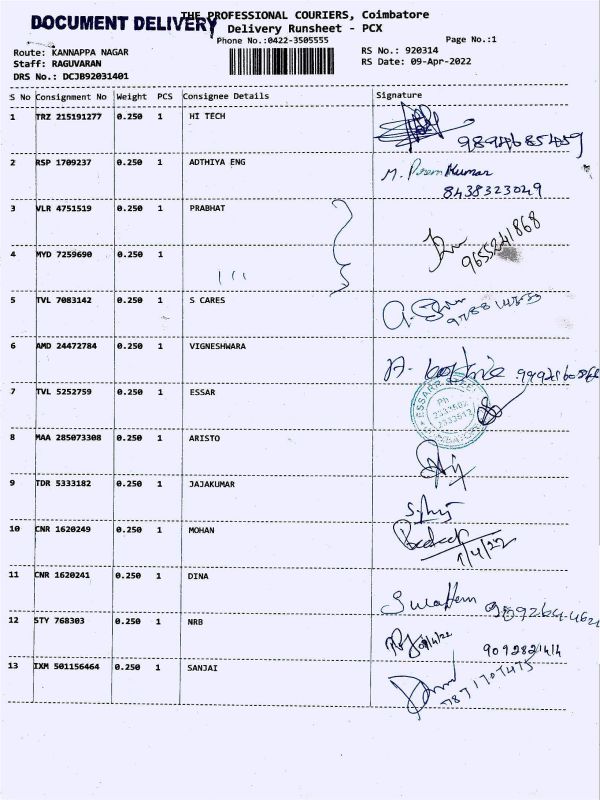 DOCUMENT DELIVERY
THE PROFESSIONAL COURIERS, Coimbatore
Delivery Runsheet - PCX
Phone No.:0422-3505555
Page No.:1
Route: KANNAPPA NAGAR
RS No.: 920314
Staff: RAGUVARAN
RS Date: 09-Apr-2022
DRS No.: DCJB92031401
S No Consignment No Weight PCS Consignee Details Signature
1 TRZ 215191277 0.250 1 HI TECH
2 RSP 1709237 0.250 1 ADTHIYA ENG M. Prem Kumar
8438323049
3 VLR 4751519 0.250 1 PRABHAT
9655241868
4 MYD 7259690 0.250 1
5 TVL 7083142 0.250 1 S CARES
6 AMD 24472784 0.250 1 VIGNESHWARA
7 TVL 5252759 0.250 1 ESSAR
8 MAA 285073308 0.250 1 ARISTO
9 TDR 5333182 0.250 1 JAJAKUMAR
10 CNR 1620249 0.250 1 MOHAN
11 CNR 1620241 0.250 1 DINA
12 STY 768303 0.250 1 NRB
13 IXM 501156464 0.250 1 SANJAI